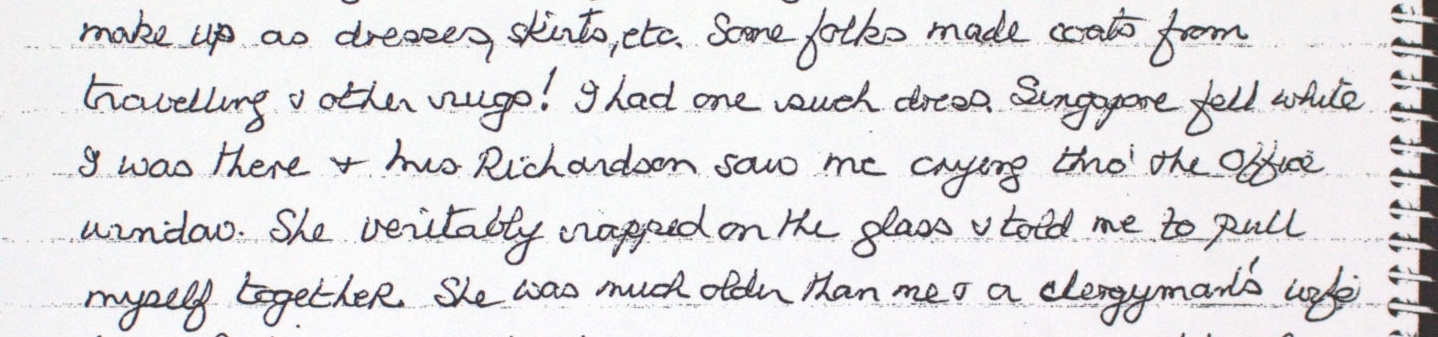 make up as dresses, skirts, etc. Some folks made coats from
travelling & other rugs! I had one such dress. Singapore fell while
I was there + Mrs Richardson saw me crying thro' the Office
window. She veritably rapped on the glass & told me to pull
myself together. She was much older than me & a clergyman's wife